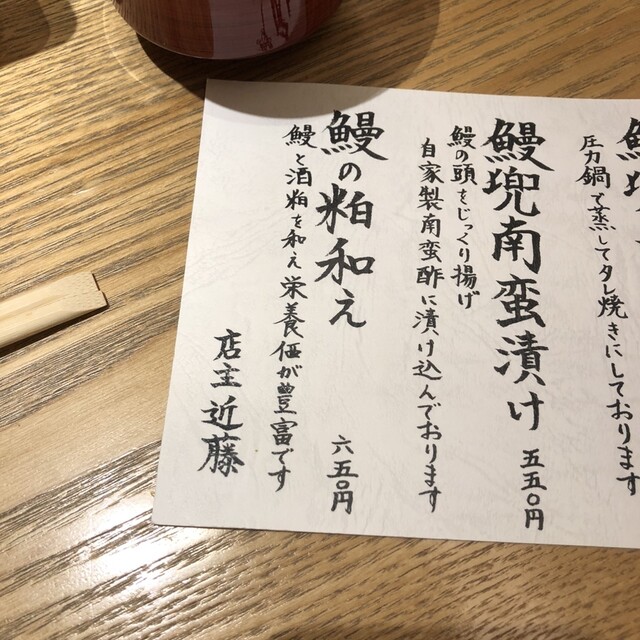 圧力鍋で蒸してタレ焼きにしております
鰻兜南蛮漬け 五五〇円
鰻の頭をじっくり揚げ
自家製南蛮酢に漬け込んでおります
鰻の粕和え 六五〇円
鰻と酒粕を和え栄養価が豊富です
店主 近藤